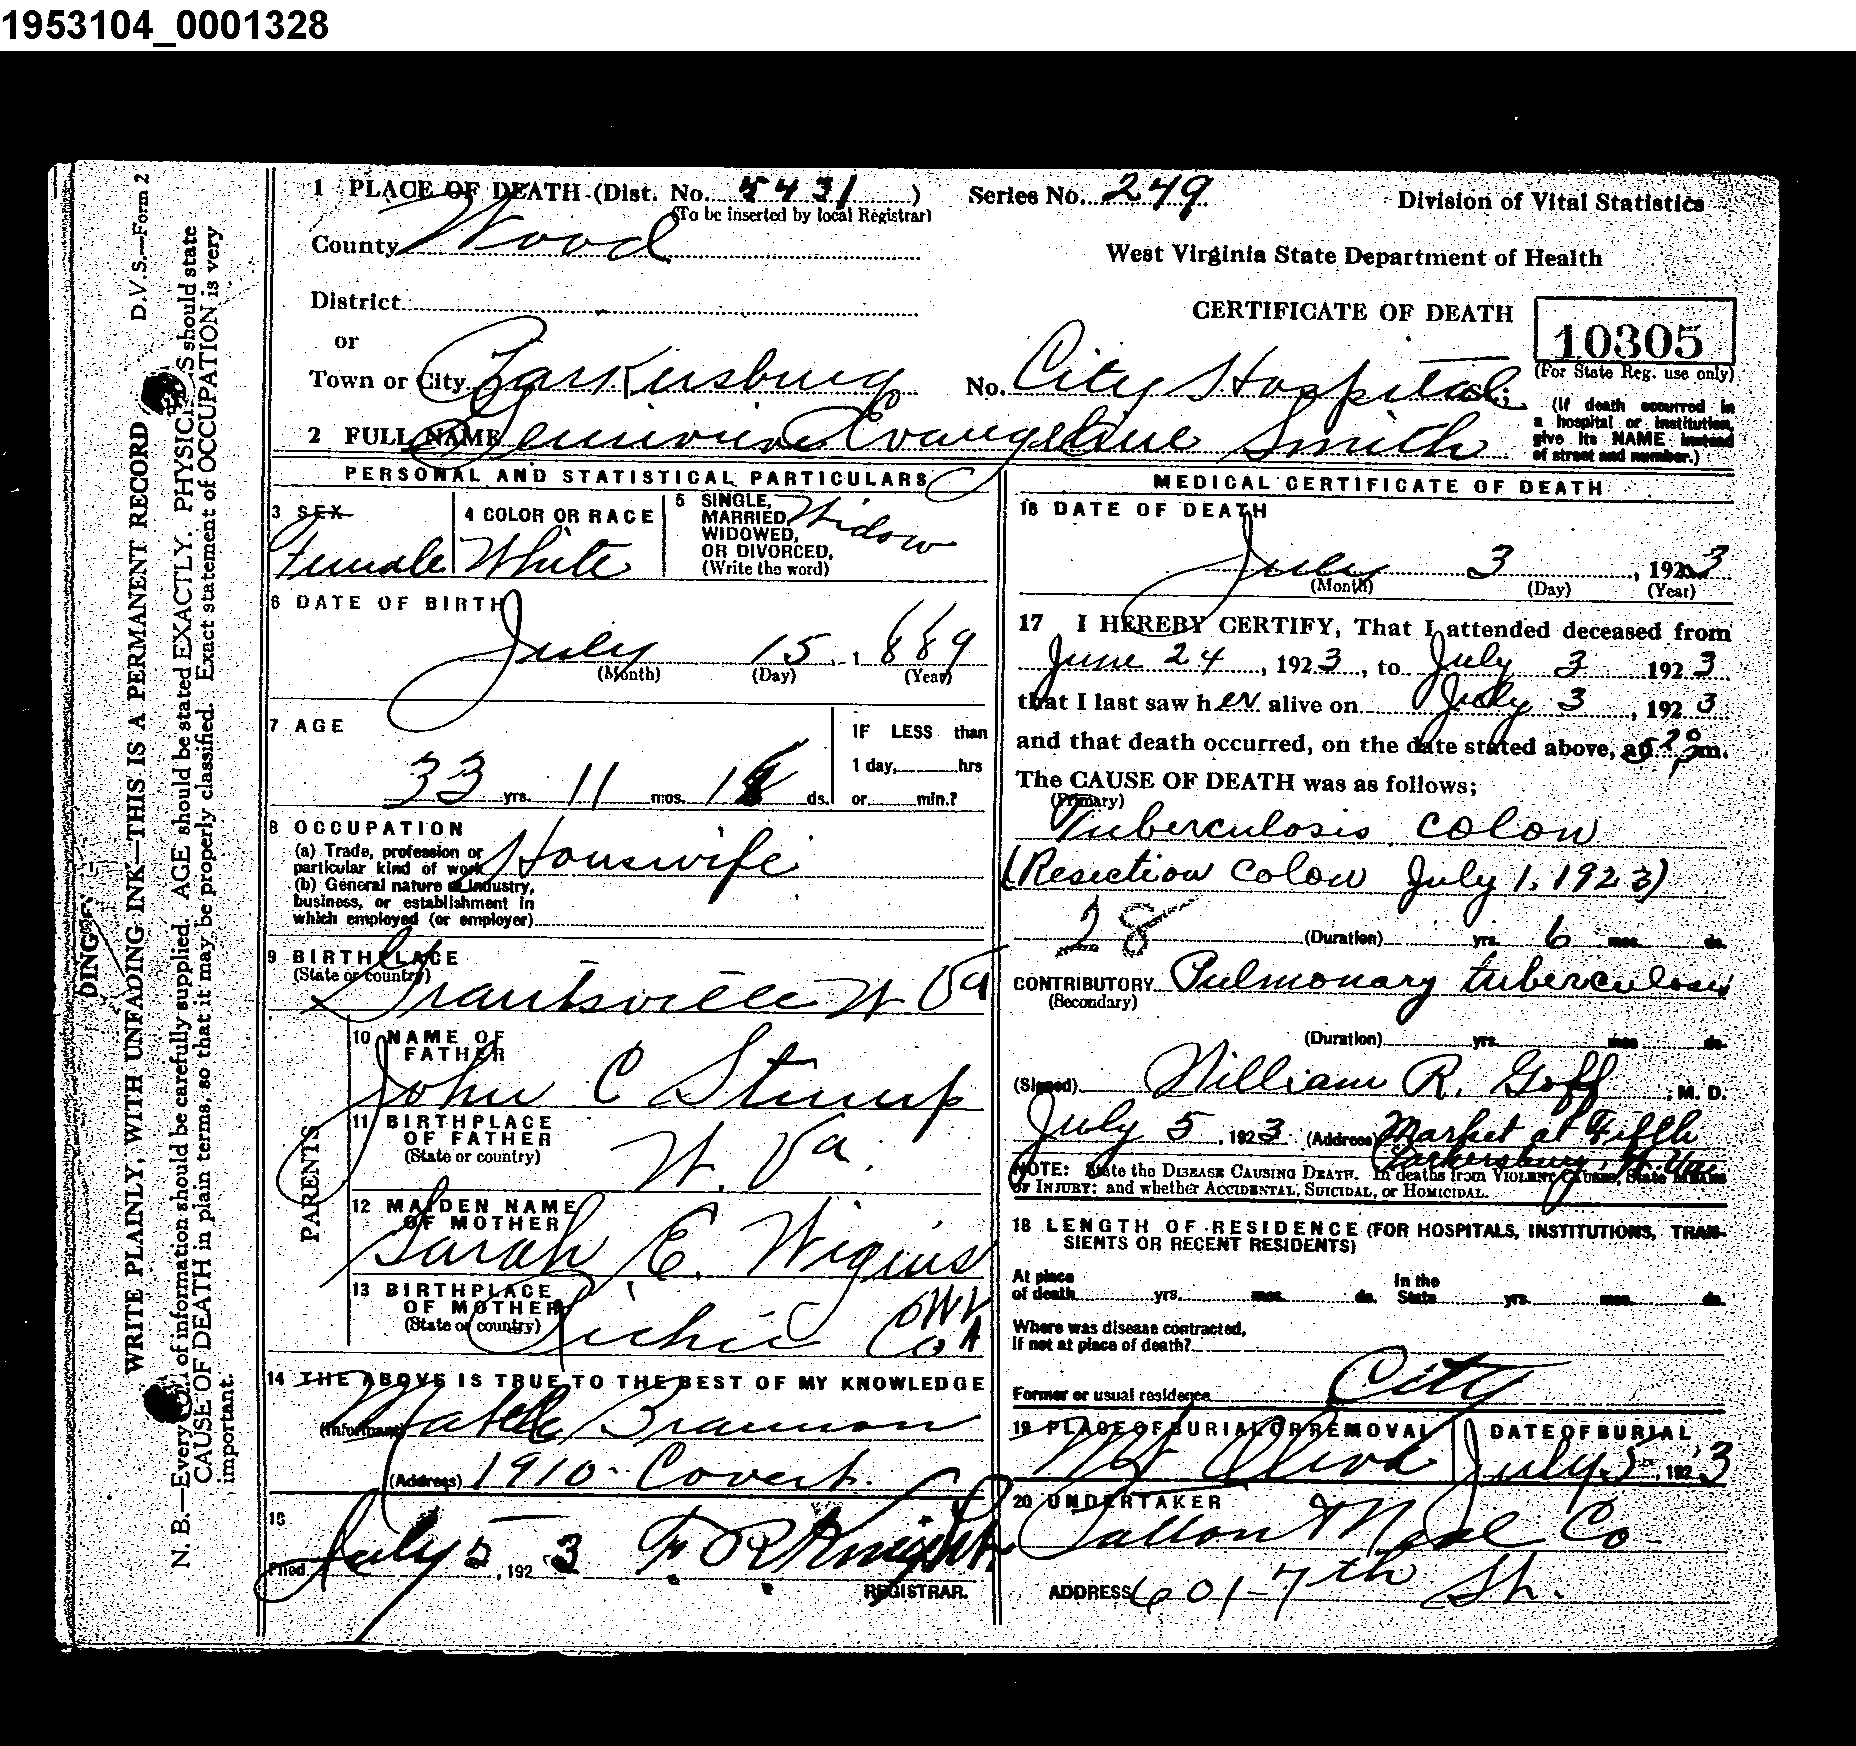 1953104_0001328
1 PLACE OF DEATH (Dist. No. 5431 ) Series No. 249 Division of Vital Statistics
(To be inserted by local Registrar)
County Wood
West Virginia State Department of Health
District
CERTIFICATE OF DEATH 10305
or
(For State Reg. use only)
Town or City Parkersburg No. City Hospital
(If death occurred in
a hospital or institution,
give its NAME instead
of street and number.)
2 FULL NAME Evangeline Smith
PERSONAL AND STATISTICAL PARTICULARS
3 SEX
Female
4 COLOR OR RACE
White
5 SINGLE,
MARRIED,
WIDOWED,
OR DIVORCED,
(Write the word)
Widow
6 DATE OF BIRTH
July 15, 1889
(Month) (Day) (Year)
7 AGE
33 yrs. 11 mos. ds.
IF LESS than
1 day, hrs
or min.?
8 OCCUPATION
(a) Trade, profession or
particular kind of work Houswife
(b) General nature of industry,
business, or establishment in
which employed (or employer)
9 BIRTHPLACE
(State or country)
Grantsville W Va
PARENTS
10 NAME OF
FATHER
John C Stump
11 BIRTHPLACE
OF FATHER
(State or country)
W. Va.
12 MAIDEN NAME
OF MOTHER
Sarah E. Wigins
13 BIRTHPLACE
OF MOTHER
(State or country)
Richie Co W VA
14 THE ABOVE IS TRUE TO THE BEST OF MY KNOWLEDGE
(Informant) Brannon
(Address) 1910 - Covert.
15
Filed July 5, 1923 Knight
REGISTRAR.
MEDICAL CERTIFICATE OF DEATH
16 DATE OF DEATH
July 3, 1923
(Month) (Day) (Year)
17 I HEREBY CERTIFY, That I attended deceased from
June 24, 1923, to July 3 1923
that I last saw her alive on July 3, 1923
and that death occurred, on the date stated above, at m.
The CAUSE OF DEATH was as follows;
(Primary)
Tuberculosis colon
(Resection colon July 1, 1923)
28 (Duration) yrs. 6 mos. ds.
CONTRIBUTORY Pulmonary tuberculosis
(Secondary)
(Duration) yrs. mos. ds.
(Signed) William R. Goff, M. D.
July 5, 1923 (Address) Market at Fifth
Parkersburg, W. Va.
NOTE: State the DISEASE CAUSING DEATH. In deaths from VIOLENT CAUSES, State MEANS
OF INJURY; and whether ACCIDENTAL, SUICIDAL, or HOMICIDAL.
18 LENGTH OF RESIDENCE (FOR HOSPITALS, INSTITUTIONS, TRAN-
SIENTS OR RECENT RESIDENTS)
At place
of death yrs. mos. ds.
In the
State yrs. mos. ds.
Where was disease contracted,
If not at place of death?
Former or usual residence City
19 PLACE OF BURIAL OR REMOVAL
Mt Olive
DATE OF BURIAL
July 5, 1923
20 UNDERTAKER
Co
ADDRESS 601-7th St.
D.V.S.—Form 2
WRITE PLAINLY, WITH UNFADING INK—THIS IS A PERMANENT RECORD
N. B.—Every of information should be carefully supplied. AGE should be stated EXACTLY. PHYSICI S should state
CAUSE OF DEATH in plain terms, so that it may be properly classified. Exact statement of OCCUPATION is very
important.